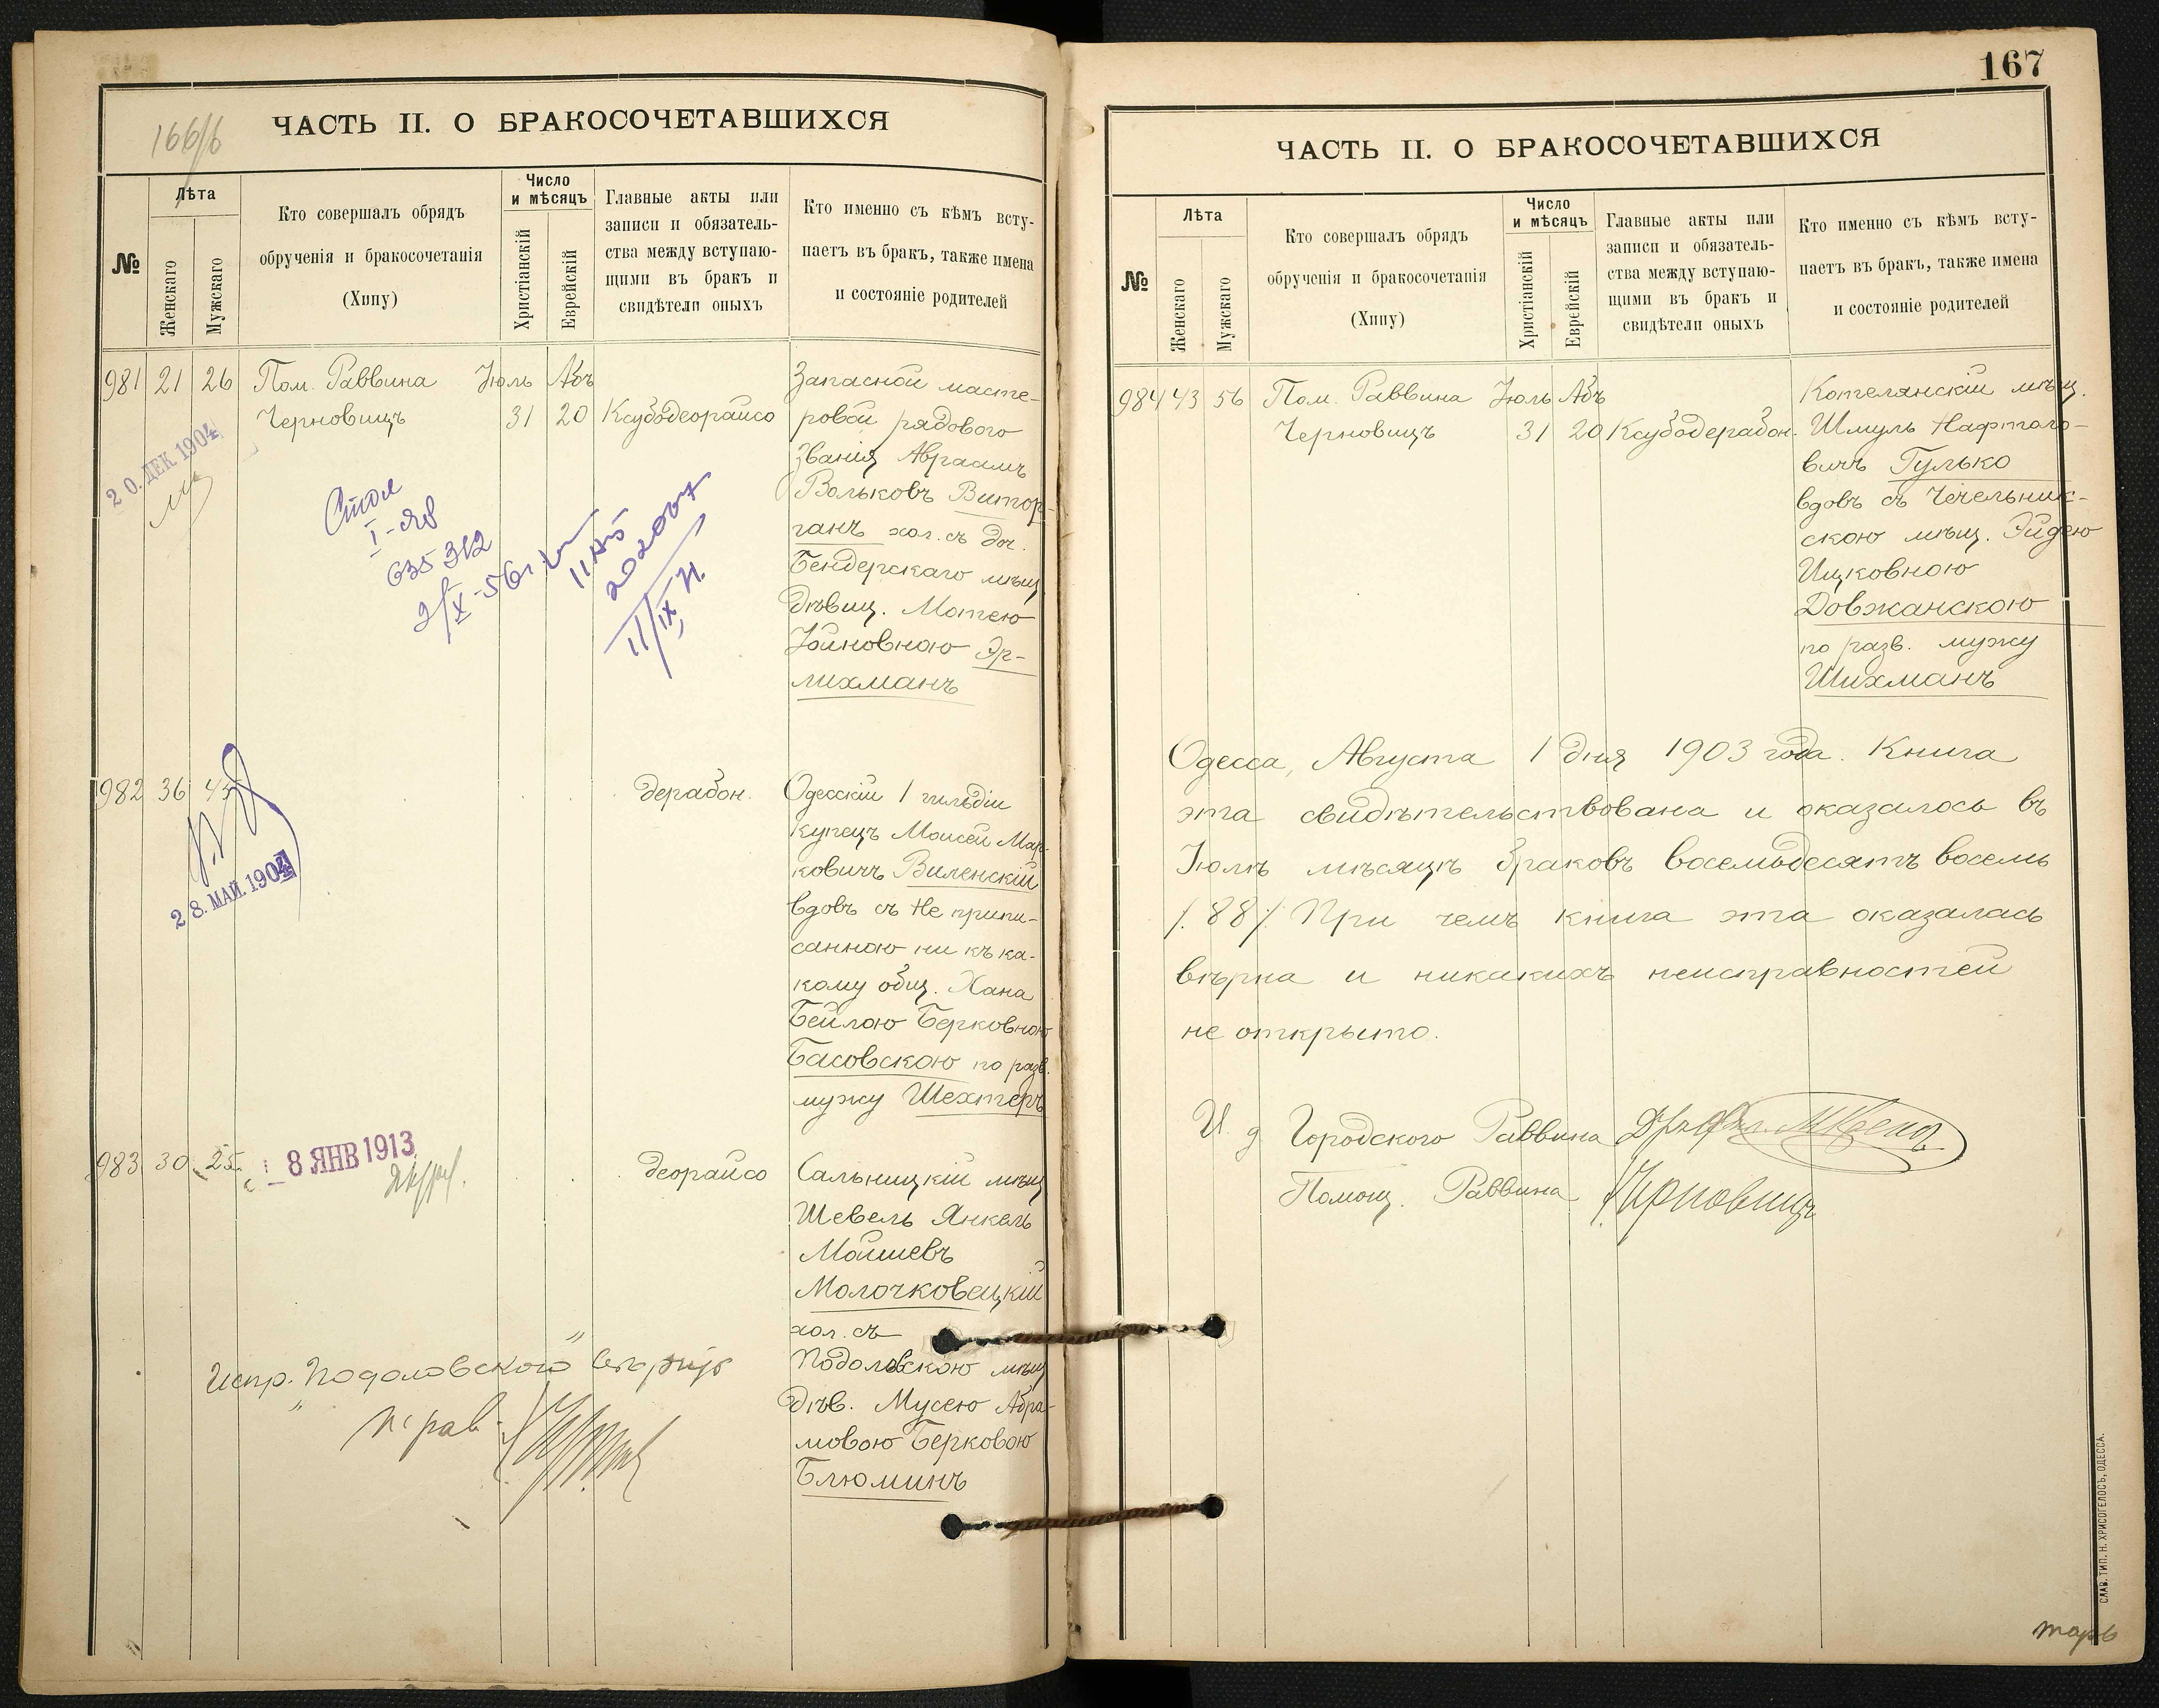 166/б
ЧАСТЬ II. О БРАКОСОЧЕТАВШИХСЯ
№
Лѣта
Женскаго
Мужскаго
Кто совершалъ обрядъ
обрученія и бракосочетанія
(Хипу)
Число
и мѣсяцъ
Христіанскій
Еврейскій
Главные акты или
записи и обязатель-
ства между вступаю-
щими въ бракъ и
свидѣтели оныхъ
Кто именно съ кѣмъ всту-
паетъ въ бракъ, также имена
и состояніе родителей
981 21 26 Пом. Раввина Іюль Абъ
Черновицъ 31 20 Ксубодеорайсо
Запасной масте-
ровой рядового
званія Авраамъ
Вольковъ Витор-
ганъ хол. съ доч.
Бендерскаго мѣщ.
дѣвиц. Мотею
Іойновною Эр-
лихманъ
20. ДЕК. 1904
Стол
I-
635312
2/X-56г.
11
202007
11/IX
982 36 45 дерабон.
Одесскій 1 гильдіи
купецъ Моисей Мар-
ковичъ Виленскій
вдовъ съ Не припи-
санною ни къ ка-
кому общ. Хана
Бейлою Берковною
Басовскою по разв.
мужу Шехтеръ
28. МАЙ. 1904
983 30 25 деорайсо
8 ЯНВ 1913
Сальницкій мѣщ
Шевель Янкель
Мошиевъ
Молочковецкій
хол. съ
Подоловскою мѣщ
дѣв. Мусею Абра-
мовою Берковою
Блюминъ
Испр. "Подоловского" вѣрить
п. рав.
167
ЧАСТЬ II. О БРАКОСОЧЕТАВШИХСЯ
№
Лѣта
Женскаго
Мужскаго
Кто совершалъ обрядъ
обрученія и бракосочетанія
(Хипу)
Число
и мѣсяцъ
Христіанскій
Еврейскій
Главные акты или
записи и обязатель-
ства между вступаю-
щими въ бракъ и
свидѣтели оныхъ
Кто именно съ кѣмъ всту-
паетъ въ бракъ, также имена
и состояніе родителей
984 43 56 Пом. Раввина Іюль Абъ
Черновицъ 31 20 Ксубодерабон.
Котелянскій мѣщ.
Шмуль Нафтоло-
вичъ Гулько
вдовъ съ Чечельник-
скою мѣщ. Эйдею
Ицковною
Довжанскою
по разв. мужу
Шихманъ
Одесса, Августа 1 дня 1903 года. Книга
эта свидѣтельствована и оказалось въ
Іюлѣ мѣсяцѣ браковъ восемьдесятъ восемь
/.88/. При чемъ книга эта оказалась
вѣрна и никакихъ неисправностей
не открыто.
И. д. Городского Раввина
Помощ. Раввина Черновицъ
СЛАВ. ТИП. Н. ХРИСОГЕЛОСЪ, ОДЕССА.